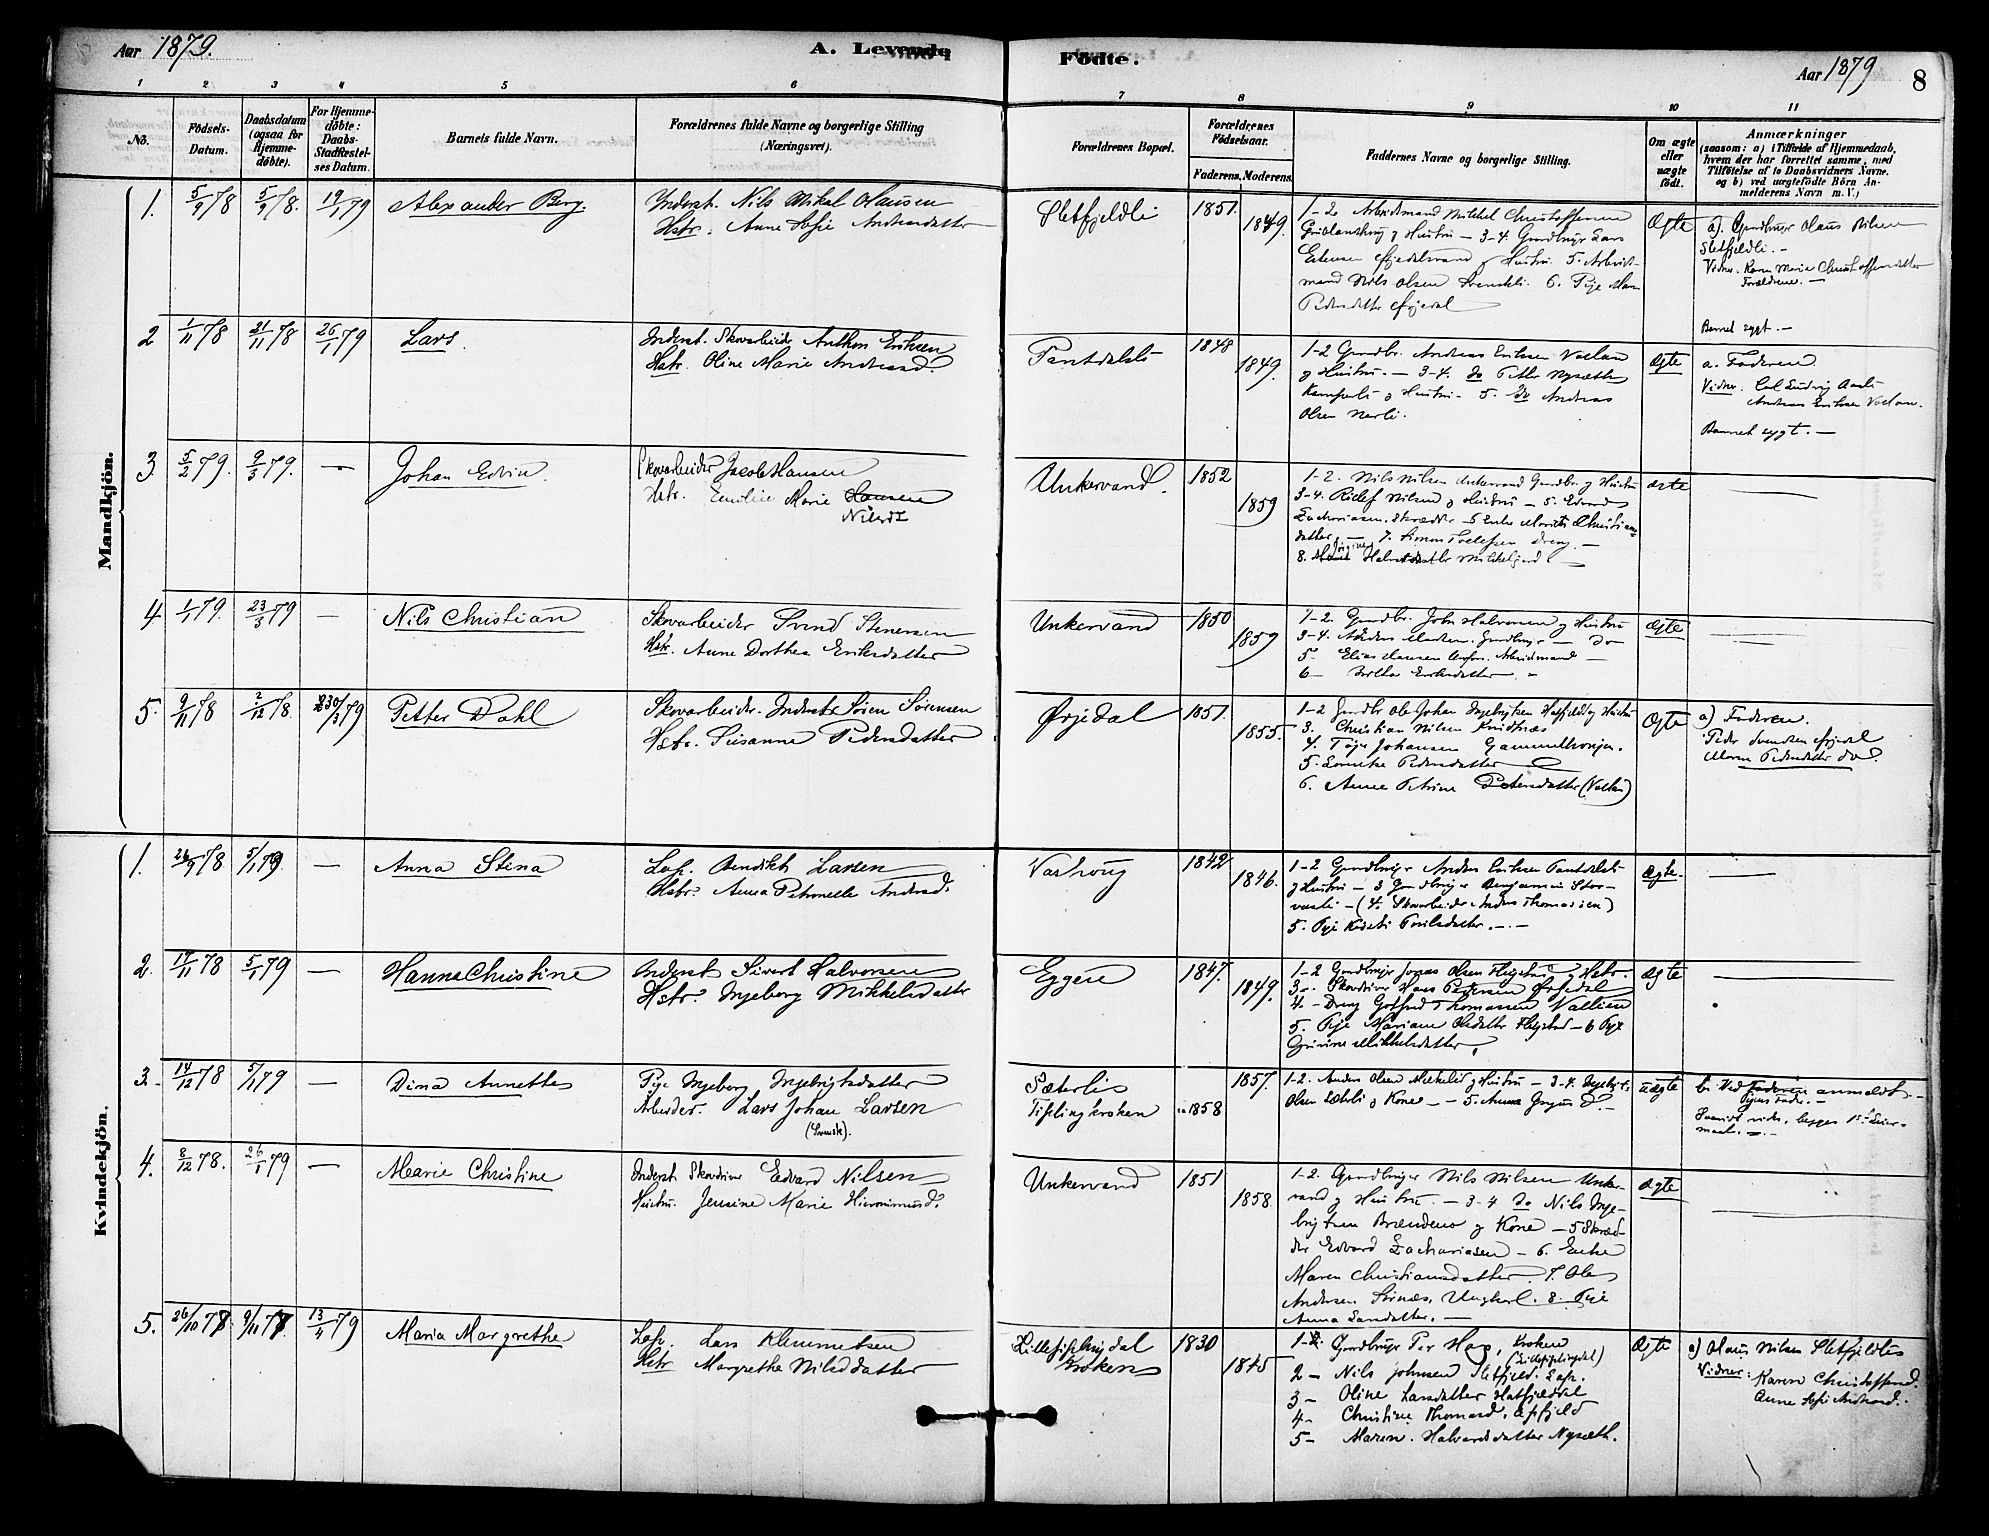 Aar 1879.
A. Levende
Födte.
Aar 1879
8
1 2 3 4 5 6 7 8 9 10 11
No.
Födsels-Datum.
Daabsdatum (ogsaa for Hjemme-döbte).
For Hjemme-döbte: Daabs-Stadfæstel-ses Datum.
Barnets fulde Navn.
Forældrenes fulde Navne og borgerlige Stilling (Næringsvei).
Forældrenes Bopæl.
Forældrenes Födselsaar.
Faderens. Moderens.
Faddernes Navne og borgerlige Stilling.
Om ægte eller uægte födt.
Anmærkninger
(saasom: a) i Tilfælde af Hjemmedaab,
hvem der har forrettet samme, med
Tilföielse af to Daabsvidners Navne.
og b) ved uægtefödte Börn An-
melderens Navn m. V.)
Mandkjön.
1. 5/9 78 5/9 78. 19/1 79 Alexander Berg.
Inderst. Nils Mikal Olausen
Hstr. Anne Sofie Andreasdatter
Sletfjeldli 1851. 1849.
1-2 Arbeidsmand Mikkel Christoffersen
og Hustru — 3-4. Gaardbruger Lars
Estensen og Hustru. 5. Arbeids-
mand Nils Olsen 6. Pige
Pedersdatter Örjedal
Ægte
a). Gaardbruger Olaus Nilsen
Sletfjeldli. —
Vidner. Karen Marie Christoffersdatter
Forældrene. —
Barnet sygt. —
2 1/11 78 21/11 78 26/1 79 Lars.
Inderst. Skovarbeider Anthon Eriksen
Hstr. Oline Marie Andreasd.
Pantdalsli 1848 1849.
1-2 Gaardbr. Andreas Eriksen
og Hustru. — 3-4. do Petter Nysæth
og Hustru. 5. do Andreas
Olsen Nerli.
Ægte
a. Faderen
Vidner. Carl Ludvig
Andreas Eriksen
Barnet sygt. —
3 5/2 79. 9/3 79. — Johan Edvin.
Skovarbeider Jacob Hansen
Hstr. Emilie Marie Hansen
Nilsd
Unkervand. 1852 1859
1-2. Nils Nilsen Unkervand Gaardbr. og Hustru
3-4. Nilsen og Hustru — 5. Edvard
Zachariasen. Skrædder — Enke Christians-
datter — 7. Simon Dreng. —
8. Halvorsdatter
ægte
4 1/1 79. 23/3 79 — Nils Christian
Skovarbeider Svend Stenersen
Hstr. Anne Dorthea Eriksdatter
Unkervand 1850 1859
1-2. Gaardbr. John Halvorsen og Hustru
3-4. Anders Gaardbruger — do
5. Elias Hansen Arbeidsmand —
6 — Eriksdatter
Ægte
5. 9/11 78 2/12 78. 30/3 79 Petter Dahl
Skovarbeider. Inderst Sören Sörensen
Hstr. Susanne Pedersdatter
Örjedal 1851. 1855.
1-2 Gaardbr Ole Johan Ingebrigtsen Hatfjeld og Hustru
3. Christian Nilsen Kvidtnæs
4. Johansen
5. Pedersdatter
6. Anne Petrine Petersdatter
Ægte
a) Faderen.
Peder Svendsen Örjedal
Maren Pedersdatter do.
Kvindekjön.
1. 78 5/1 79 — Anna Stina
Lap. Bendikt Larsen
Hstr. Anna Petronelle Andreasd.
1842 1846.
1-2 Gaardbruger Anders Eriksen Pantdalsli
og Hustru — 3 Gaardbruger Benjamin Stor-
— (4. Skovarbeider Anders Thomassen)
5. Pige
Ægte.
2. 17/11 78 5/1 79 — Hanna Christine
Inderst Sivert Halvorsen
Hstr. Ingeborg Mikkelsdatter
Eggen 1847. 1849.
1-2 Gaardbruger Jonas Olsen og Hstr.
3 — Hans Pedersen Örjedal
4. — Dreng Gotfred Thomassen
5. Pige Mariane Olsdatter — 6 Pige
Mikkelsdatter
Ægte
3. 14/12 78 5/1 79 — Dina Annette
Pige Ingeborg Ingebrigtsdatter
Arbeider. Lars Johan Larsen
(Svensk).
Sæterli
Fiplingkroken 1857. 1858
1-2. Anders Olsen og Hustru — 3-4. Ingebrigt
Olsen Sæterli og Kone — 5. Anna
uægte
b. Ved Faderen anmeldt. —
Pigens Fader. —
4. 8/12 78. 26/1 79 — Marie Christine
Inderst Skovdriver Edvard Nilsen
Hustru. Jensine Marie Hieronimusd.
Unkervand 1851 1858
1-2. Gaardbruger Nils Nilsen Unker-
vand og Hustru. — 3-4 do Nils Inge-
brigtsen Brændmo og Kone — 5 Skræd-
der Edvard Zachariasen — 6. Enke
Maren Christiansdatter. 7. Ole
Andersen. Ungkarl. 8. Pige
Anna —
Ægte
5. 26/10 77. 9/11 77. 13/4 79 Maria Margrethe
Lap. Lars Klemmetsen
Hstr Margrethe Nilsdatter
Lillefiplingdal
Kroken 1830 1845
1 — Gaardbruger Per Kroken
(Lillefiplingdal)
2 — Nils Johnsen Sletfjeld. Lap.
3 — Oline Larsdatter Hatfjeldal
4 — Christine Thomasd.
5 — Maren. Halvordsdatter Nysæth.
Ægte
a) Olaus Nilsen Sletfjeldli
Vidner: Karen Christoffersd.
Anne Sofie Andreasd.